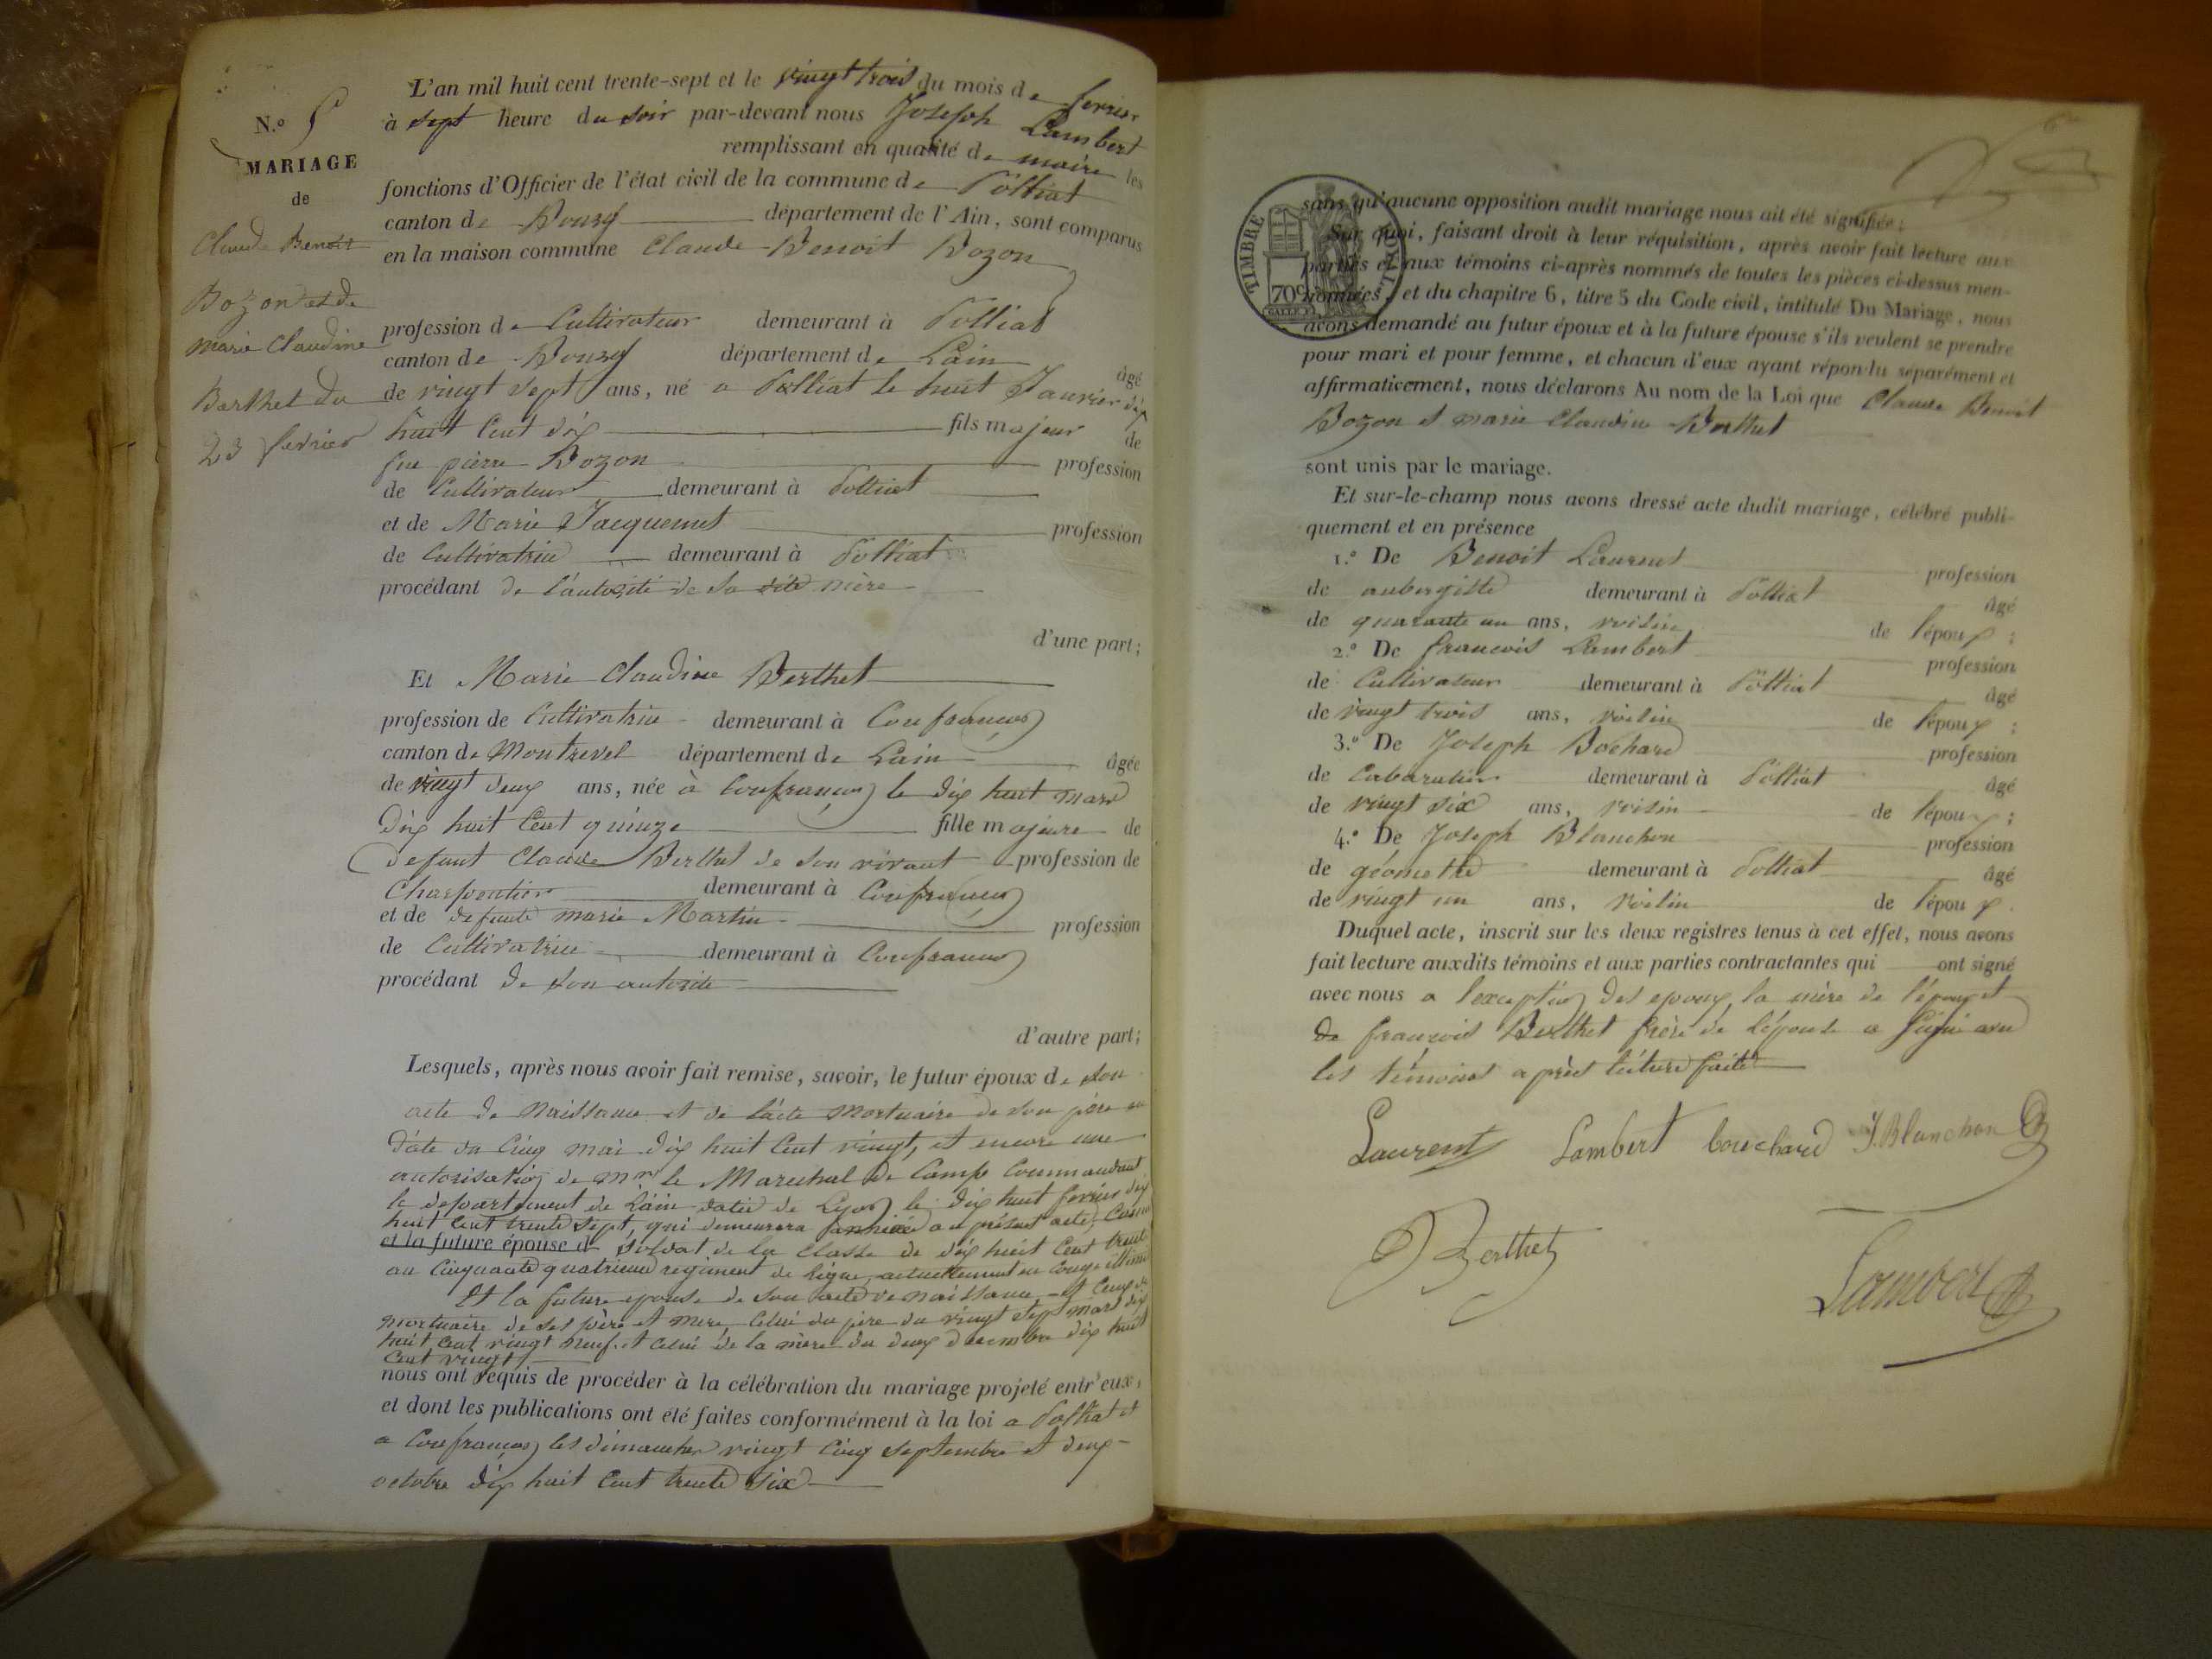 N.o 5
MARIAGE
de
Claude Benoit
Bozon et de
marie Claudine
Berthet du
23 fevrier
L'an mil huit cent trente-sept et le vingt trois du mois de fevrier
à sept heure du soir par-devant nous Joseph Lambert
remplissant en qualité de maire les
fonctions d'Officier de l'état civil de la commune de Polliat
canton de Bourg département de l'Ain, sont comparus
en la maison commune Claude Benoit Bozon
profession de Cultivateur demeurant à Polliat
canton de Bourg département de Lain âgé
de vingt sept ans, né a Polliat le huit Janvier dix
huit Cent dix fils majeur de
feu pierre Bozon profession
de Cultivateur demeurant à Polliat
et de Marie Jacquemet profession
de Cultivatrice demeurant à Polliat
procédant de l'autorité de sa dite mère
d'une part;
Et Marie Claudine Berthet
profession de Cultivatrice demeurant à Confrançon
canton de Montrevel département de Lain âgée
de vingt deux ans, née à Confrançon le dix huit mars
dix huit Cent quinze fille majeure de
defunt Claude Berthet de son vivant profession de
Charpentier demeurant à Confrançon
et de defunte marie Martin profession
de Cultivatrice demeurant à Confrançon
procédant de son autorité
d'autre part;
Lesquels, après nous avoir fait remise, savoir, le futur époux de son
acte de Naissance et de l'acte mortuaire de son père en
date du Cinq mai dix huit Cent vingt, et encore une
autorisation de Mr le Marechal de Camp Commandant
le departement de Lain datée de Lyon le dix huit fevrier dix
huit Cent trente sept, qui demeurera annéxée au présent acte, Comme
et la future épouse d soldat de la Classe de dix huit Cent trente
au Cinquante quatrieme regiment de Ligne, actuellement en Conge illimité
Et la future epouse de son acte de naissance et Ceux de
mortuaire de ses père et mere Celui du père du vingt sept mars dix
huit Cent vingt neuf et celui de la mère du deux decembre dix huit
Cent vingt
nous ont requis de procéder à la célébration du mariage projeté entr'eux,
et dont les publications ont été faites conformément à la loi a Polliat et
a Confrançon les dimanches vingt Cinq septembre et deux
octobre dix huit Cent trente six
TIMBRE ROYAL
70c
sans qu'aucune opposition audit mariage nous ait été signifiée;
Sur quoi, faisant droit à leur réquisition, après avoir fait lecture aux
parties et aux témoins ci-après nommés de toutes les pièces ci-dessus men-
tionnées, et du chapitre 6, titre 5 du Code civil, intitulé Du Mariage, nous
avons demandé au futur époux et à la future épouse s'ils veulent se prendre
pour mari et pour femme, et chacun d'eux ayant répondu séparément et
affirmativement, nous déclarons Au nom de la Loi que Claude Benoit
Bozon et marie Claudine Berthet
sont unis par le mariage.
Et sur-le-champ nous avons dressé acte dudit mariage, célébré publi-
quement et en présence
1.o De Benoit Laurent profession
de aubergiste demeurant à Polliat âgé
de quarante un ans, voisin de l'époux;
2.o De francois Lambert profession
de Cultivateur demeurant à Polliat âgé
de vingt trois ans, voisin de l'époux;
3.o De Joseph Bochard profession
de Cabaretier demeurant à Polliat âgé
de vingt six ans, voisin de l'époux;
4.o De Joseph Blanchon profession
de géometre demeurant à Polliat âgé
de vingt un ans, voisin de l'époux.
Duquel acte, inscrit sur les deux registres tenus à cet effet, nous avons
fait lecture auxdits témoins et aux parties contractantes qui ont signé
avec nous a l'exception des epoux, la mère de l'époux et
de francois Berthet frère de l'épouse a signé avec
les témoins après lecture faite
Laurent Lambert bouchard J. Blanchon
Berthet
Lambert